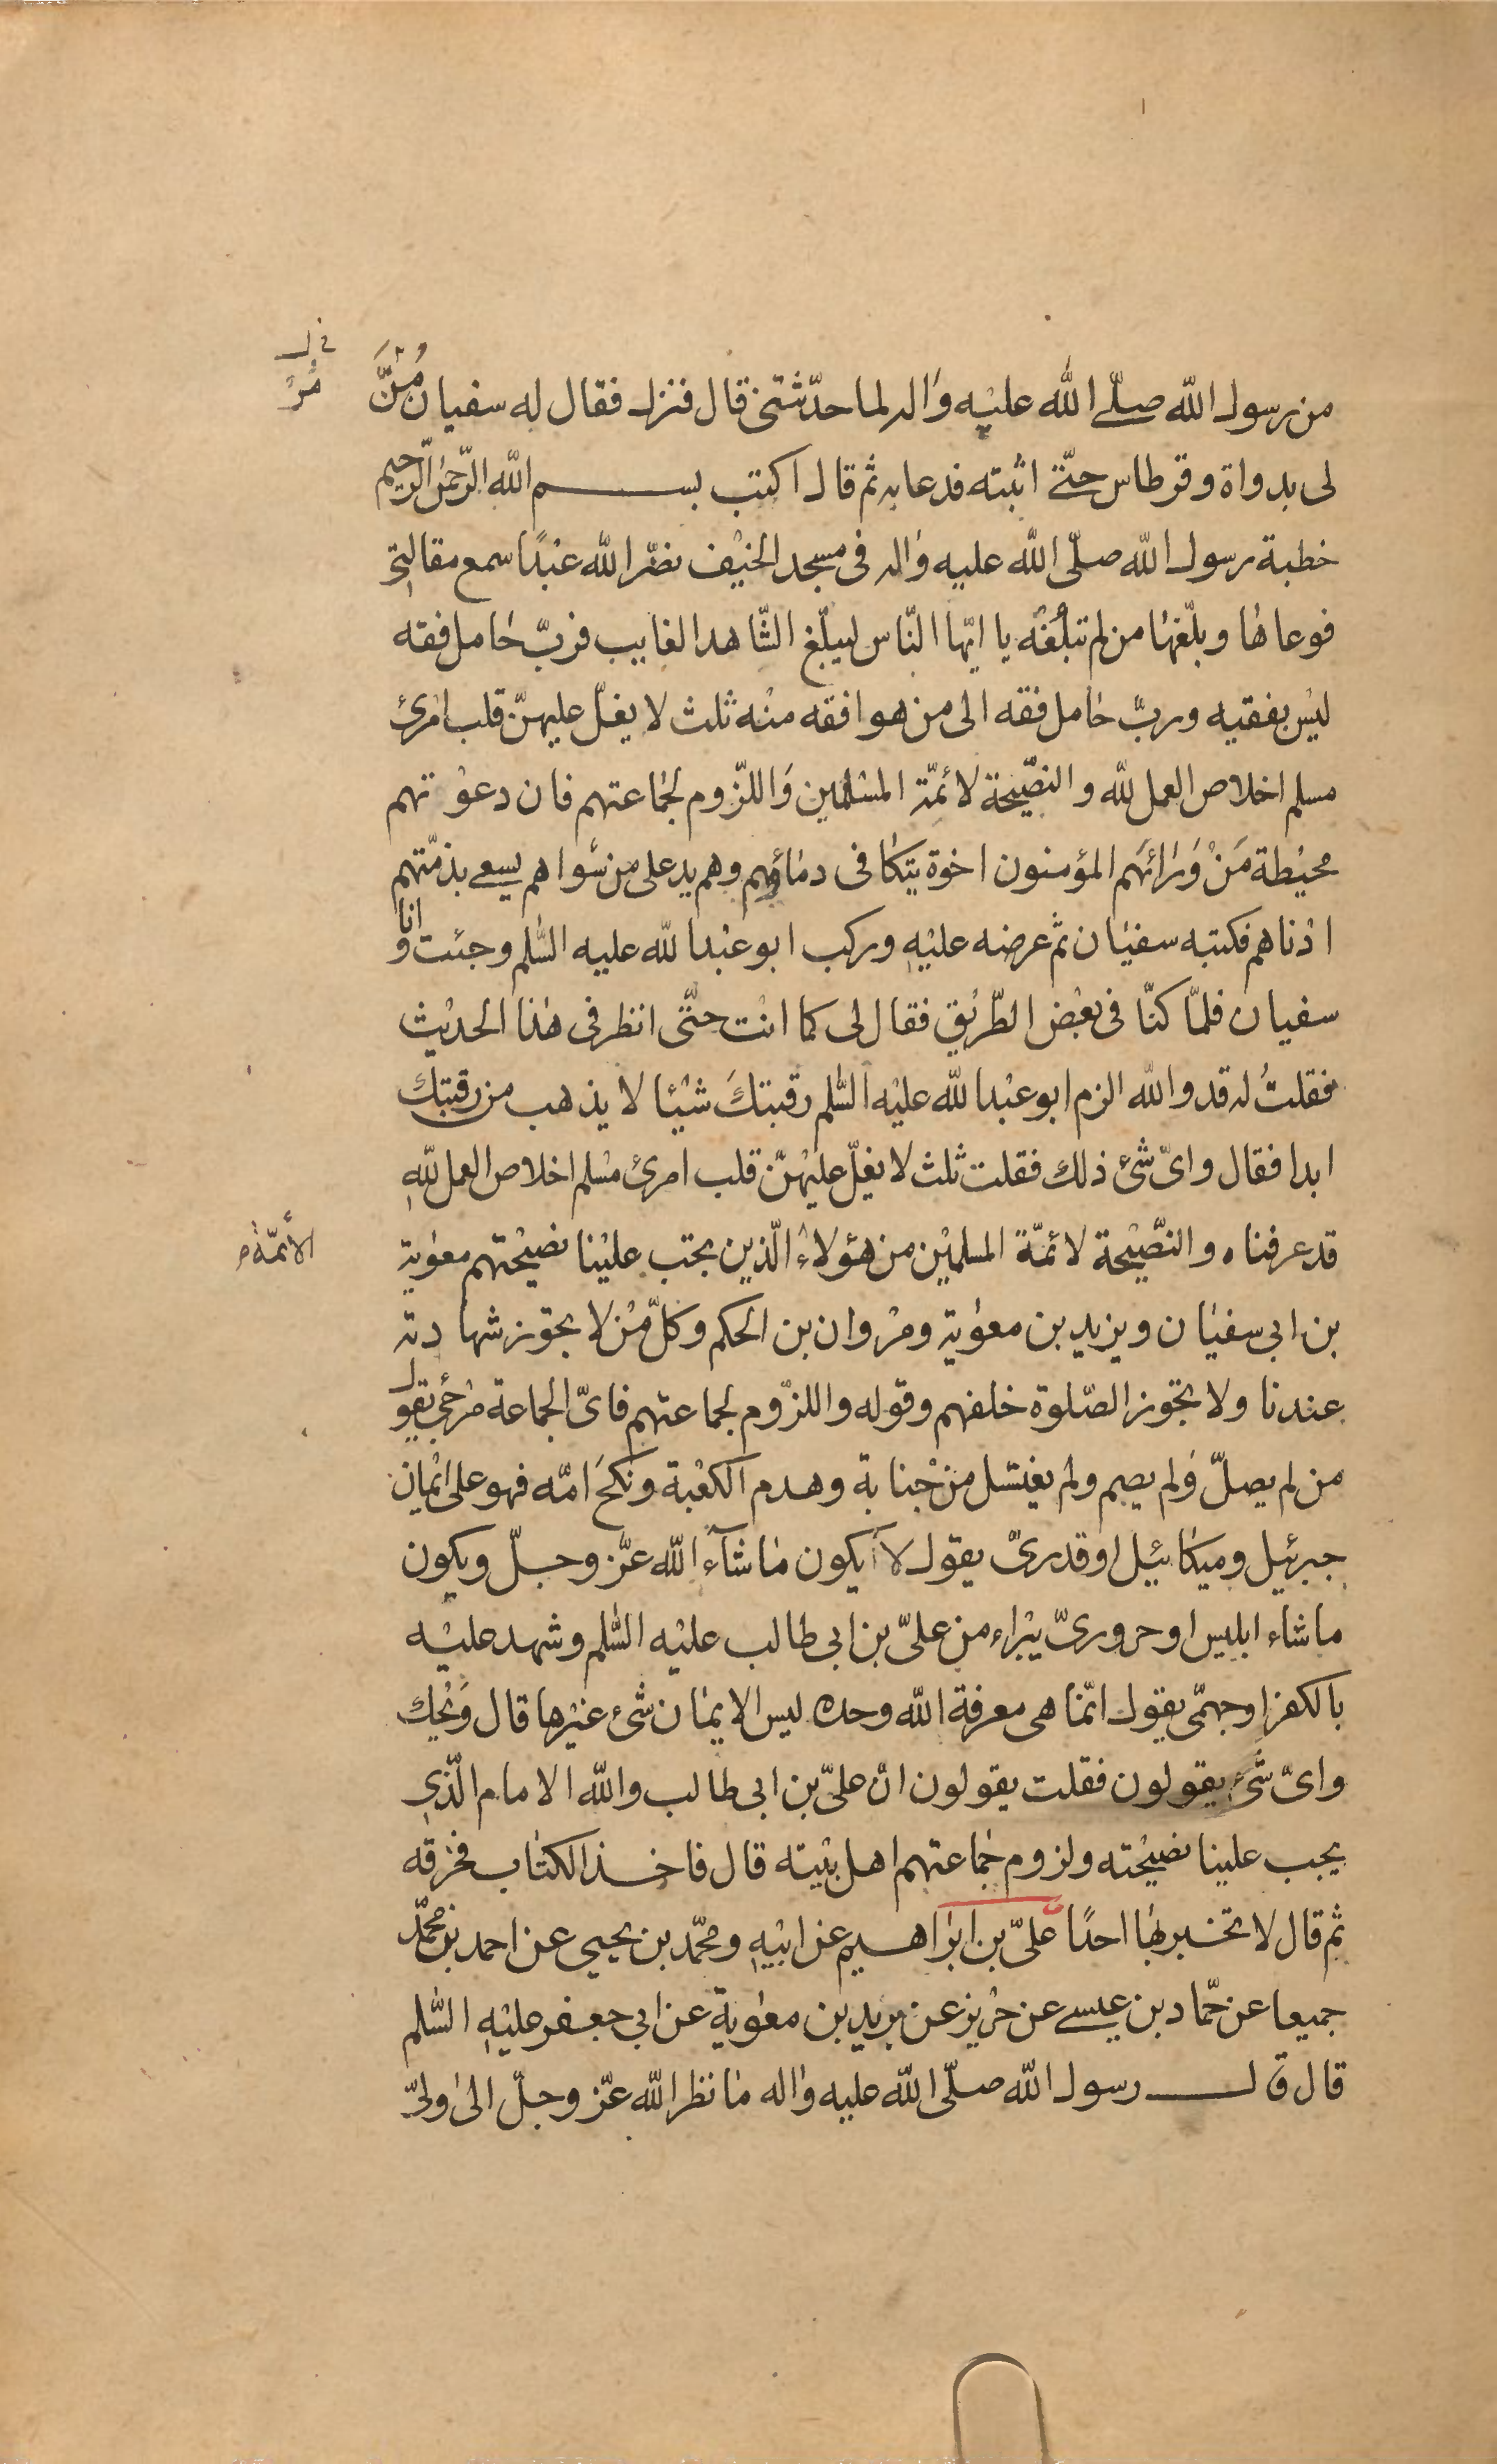 من رسول الله صلّى الله عليه واله لما حدّثتنى قال فنزل فقال له سفيان مُنَّ
فى ل
مُرْ
لى بدواة وقرطاس حتّى اثبته فدعا به ثم قال اكتب بسم الله الرّحمن الرّحيم
خطبة رسول الله صلّى الله عليه واله فى مسجد الخيف نضّر الله عبدًا سمع مقالتى
فوعاها وبلّغها من لم تبلغه يا ايّها النّاس ليبلّغ الشّاهد الغايب فربّ حامل فقه
ليس بفقيه وربّ حامل فقه الى من هو افقه منه ثلث لا يغلّ عليهنّ قلب امرئ
مسلم اخلاص العمل لله والنصّيحة لائمّة المسلمين واللّزوم لجماعتهم فان دعوتهم
محيطة مَنْ وَرَائَهم المؤمنون اخوة يتكافى دمائهم وهم يد على من سواهم يسعى بذمّتهم
ادناهم فكتبه سفيان ثم عرضه عليه وركب ابو عبد الله عليه السّلم وجئت انا و
سفيان فلمّا كنّا فى بعض الطّريق فقال لى كما انت حتّى انظر فى هذا الحديث
فقلتُ له قد والله الزم ابو عبد الله عليه السّلم رقبتكَ شيئا لا يذهب من رقبتك
ابدا فقال واىّ شئ ذلك فقلت ثلث لا يغلّ عليهنّ قلب امرئ مسلم اخلاص العمل لله
قد عرفناه والنّصيحة لائمّة المسلمين من هؤلاء الّذين يجب علينا نصيحتهم معوية
الأئمّة
بن ابى سفيان ويزيد بن معوية ومروان بن الحكم وكلّ من لا يجوز شهادته
عندنا ولا تجوز الصّلوة خلفهم وقوله واللزّوم لجماعتهم فاىّ الجماعة مرجئ يقول
من لم يصلّ ولم يصم ولم يغتسل من جنابة وهدم الكعبة ونكحَ امّه فهو على ايمان
جبرئيل وميكائيل او قدرىّ يقول لا يكون ما شآء الله عزّ وجلّ ويكون
ما شاء ابليس او حرورىّ يتبراء من علىّ بن ابى طالب عليه السّلم وشهد عليه
بالكفر او جهمّى يقول انّما هى معرفة الله وحده ليس الايمان شئ غيرها قال ويحك
واىّ شئ يقولون فقلت يقولون انّ علىّ بن ابى طالب والله الامام الّذى
يجب علينا نصيحته ولزوم جماعتهم اهل بيته قال فاخذ الكتاب فخرقه
ثم قال لا تخبر بها احدًا علىّ بن ابراهيم عن ابيه ومحمّد بن يحيى عن احمد بن محمّد
جميعا عن حمّاد بن عيسى عن حريز عن بريد بن معوية عن ابى جعفر عليه السّلم
قال قال رسول الله صلّى الله عليه واله ما نظر الله عزّ وجلّ الى ولىّ